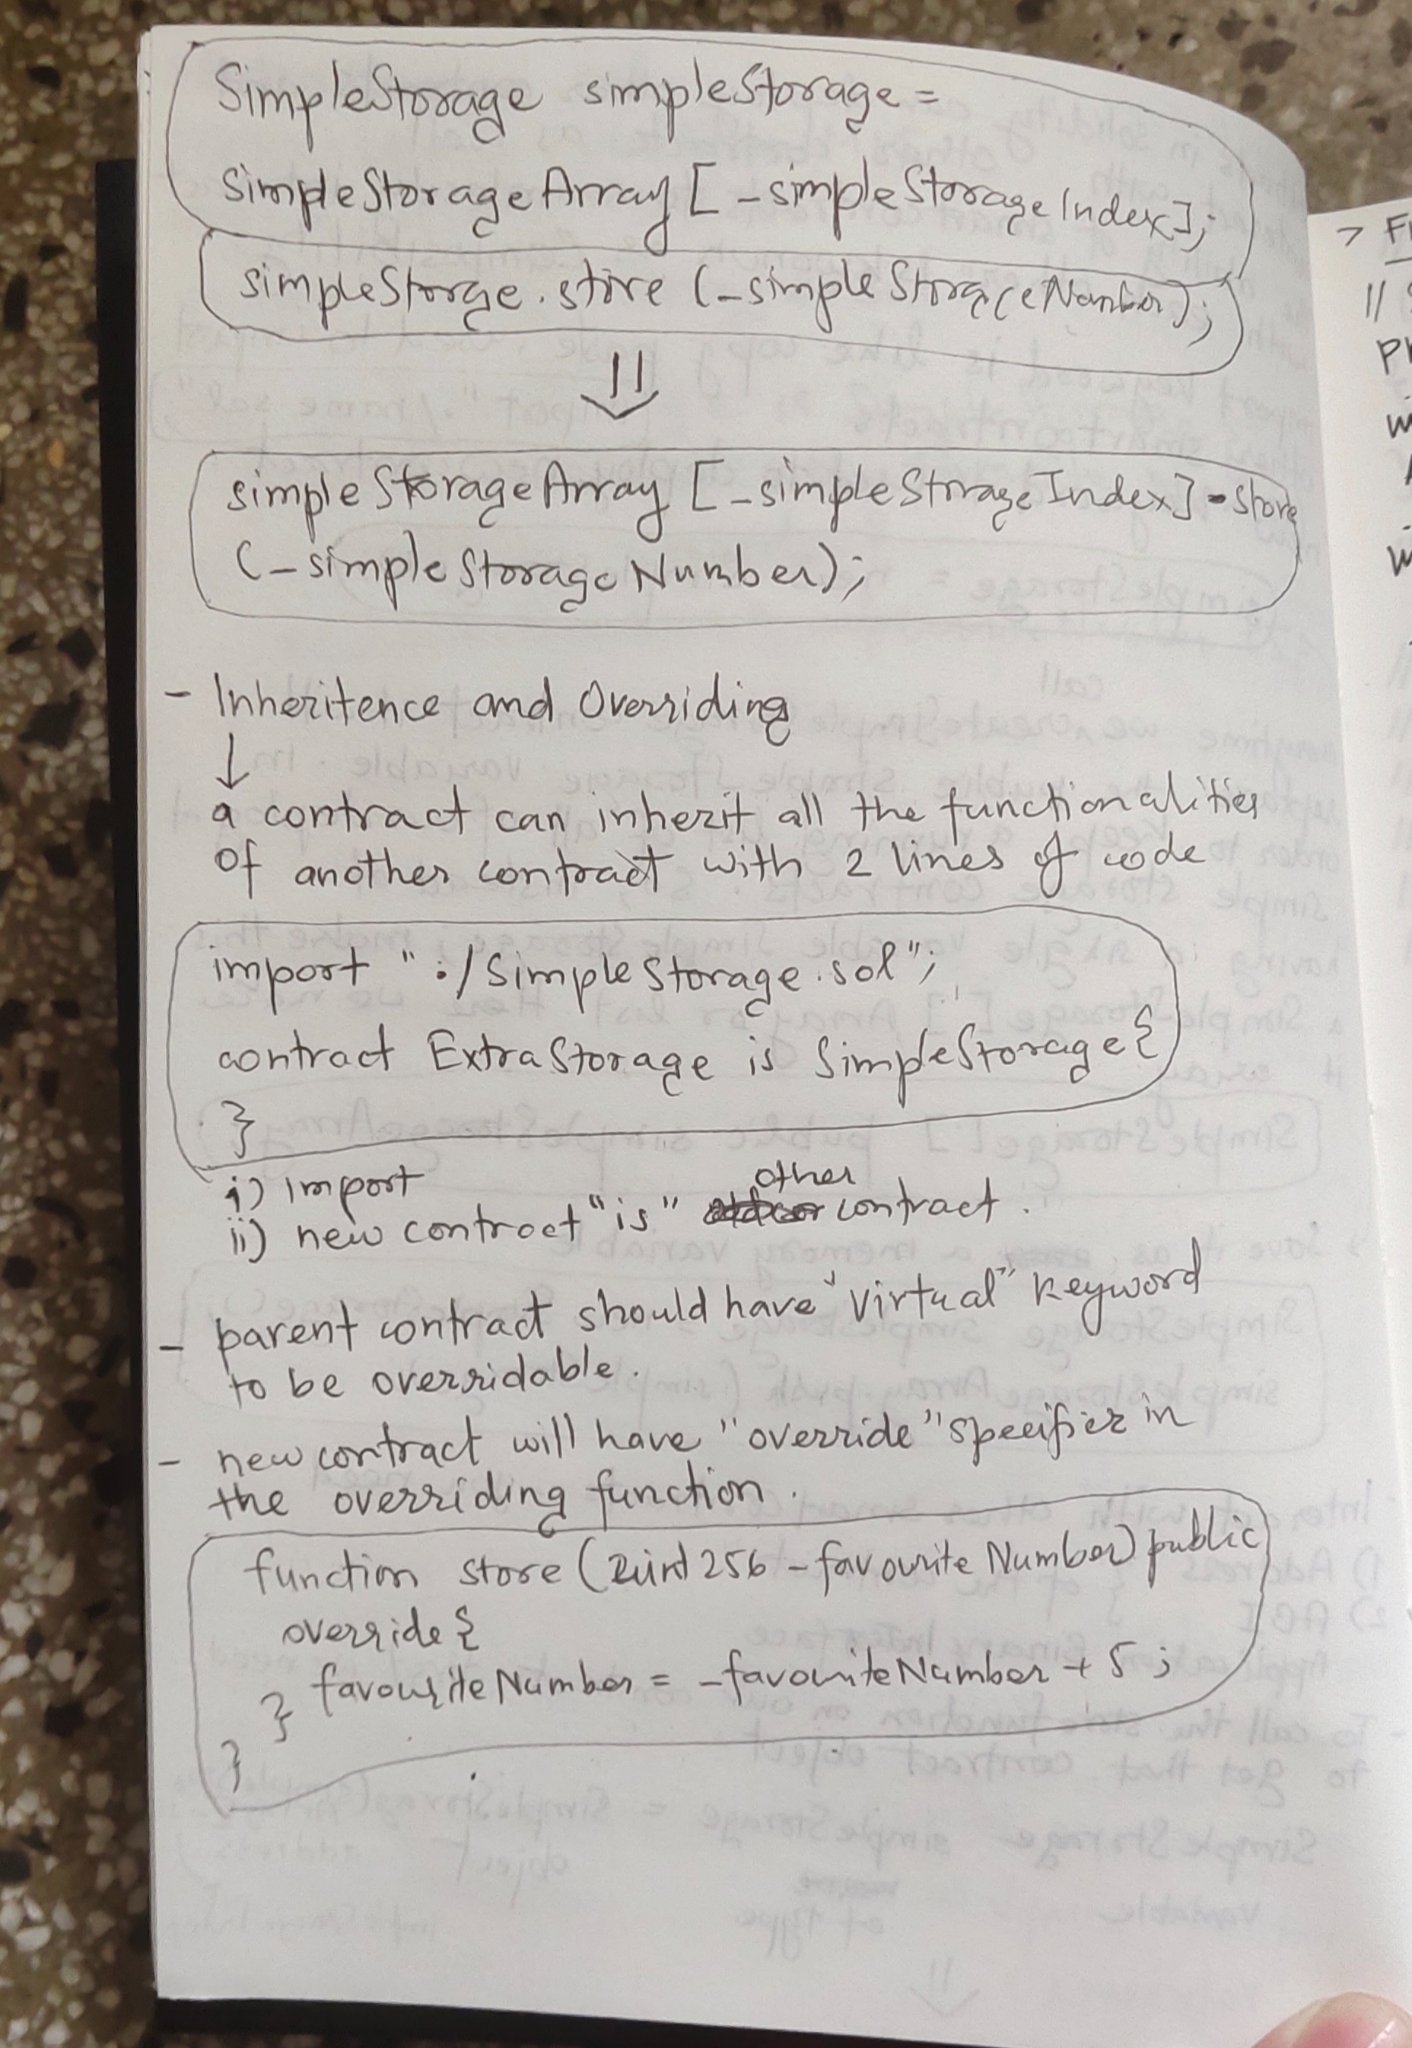 SimpleStorage simpleStorage =
SimpleStorageArray [ _simpleStorageIndex];
simpleStorge.store (_simpleStorageNumber);
⇓
simpleStorageArray [_simpleStorageIndex].store
(_simpleStorageNumber);
- Inheritence and Overriding
↓
a contract can inherit all the functionalities
of another contract with 2 lines of code
import "./SimpleStorage.sol";
contract ExtraStorage is SimpleStorage {
}
i) import
ii) new contract "is" other contract.
- parent contract should have "virtual" keyword
to be overridable.
- new contract will have "override" specifier in
the overriding function.
function store (uint256 _favouriteNumber) public
override {
favouriteNumber = _favouriteNumber + 5;
}
}
> F
//
P
w
w